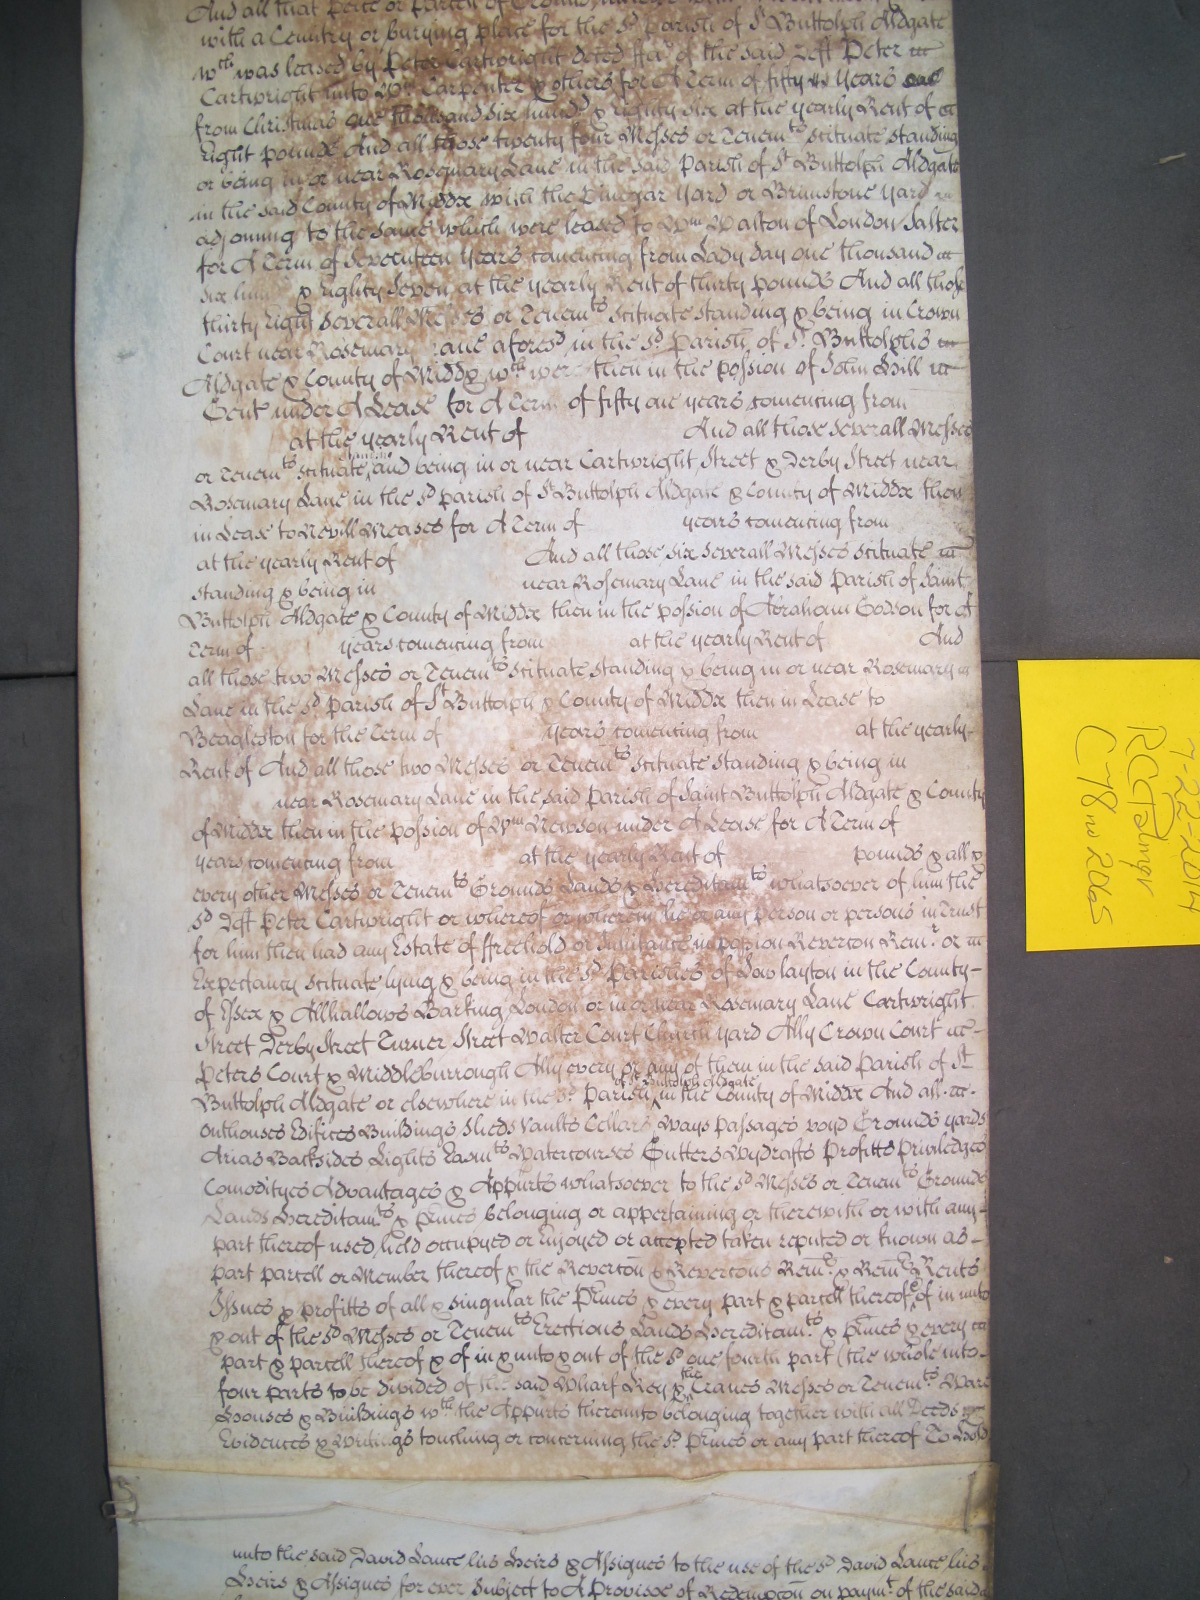 And all that peice or parcell of Ground
with a Centry or burying place for the sd. parish of St Buttolph Aldgate
wch was leased by Peter Cartwright dečed ffar. of the said Deft Peter
Cartwright unto Wm. Carpenter & others for A Term of fifty Years
from Christmas one thousand six hund.d & Eighty six at the yearly Rent of
Eight pounds And all those twenty four Messes or Tenemts. scituate standing
or being in or near Rosemary Lane in the said Parish of St Buttolph Aldgate
in the said County of Middx with the Vinegar Yard or Brimstone Yard
adjoining to the same which were leased to Wm Walton of London Salter
for A Term of Seventeen Years comencing from Lady day one thousand
six & Eighty Seven at the yearly Rent of thirty pounds And all those
thirty Eight Severall Messes or Tenemts Scituate standing & being in Crown
Court near Rosemary Lane aforesd. in the sd. Parish of St. Buttolphs
Aldgate & County of Middx wch were then in the possion of John Hill
Gent under A Lease for A Term of fifty one years comencing from
at the yearly Rent of And all those Severall Messes
or Tenemts scituate and being in or near Cartwright Street & Derby Street near
Rosemary Lane in the sd parish of St Buttolph Aldgate & County of Middx then
in Lease to Nevill Meases for A Term of years comencing from
at the yearly Rent of And all those six severall Messes scituate
standing & being in near Rosemary Lane in the said Parish of Saint
Buttolph Aldgate & County of Middx then in the possion of Abraham Godson for A
Term of years comencing from at the yearly Rent of And
all those two Messes or Tenemts scituate standing & being in or near Rosemary
Lane in the sd. parish of St Buttolph & County of Middx then in Lease to
Beagleston for the Term of years comencing from at the yearly
Rent of And all those two Messes or Tenemts scituate standing & being in
near Rosemary Lane in the said Parish of Saint Buttolph Aldgate & County
of Middx then in the possion of Wm Newson under A Lease for A Term of
years comencing from at the yearly Rent of pounds & all &
every other Messes or Tenemts Grounds Lands & Hereditamts whatsoever of him the
sd Deft Peter Cartwright or whereof or wherein he or any person or persons in Trust
for him then had any Estate of ffreehold or Inhitance in possion Reverton Remr. or
Expectancy scituate lying & being in the sd. Parishes of Low layton in the County
of Essex & Allhallows Barking London or in or near Rosemary Lane Cartwright
Street Derby Street Turner Street Walter Court Church yard Ally Crown Court
Peters Court & Middleburrough Ally every or any of them in the said Parish of St
Buttolph Aldgate or elsewhere in the sd. parish of St Buttolph Aldgate in the County of Middx And all
outhouses Edifices Buildings Sheds Vaults Cellars Ways Passages voyd Grounds yards
Arias Backsides Lights Easmts Watercourses Gutters Wydrafts Profitts Priviledges
Comodityes Advantages & Appurts whatsoever to the sd Messes or Tenemts Grounds
Lands Hereditamts & pmes belonging or appertaining or therewith or with any
part thereof used held occupyed or Enjoyed or accepted taken reputed or known as
part parcell or Member thereof & the Reverton & Revertons Remr. & Remrs Rents
Issues & profitts of all & singular the Pmes & every part & parcell thereof & of in unto
& out of the sd Messes or Tenemts Erections Lands Hereditamts & pmes & every
part & parcell thereof & of in & unto & out of the sd. one fourth part (the whole into
four parts to be divided of the said Wharf Key & the Cranes Messes or Tenemts. Ware
Houses & Buildings wth the Appurts thereunto belonging together with all Deeds
Evidences & Writings touching or concerning the sd. pmes or any part thereof To Hold
unto the said David Lance his Heirs & Assignes to the use of the sd David Lance his
Heirs & Assignes for ever Subject to A Provisoe of Redemption on paymt. of the said
7-22-2014
C 78 no 2065